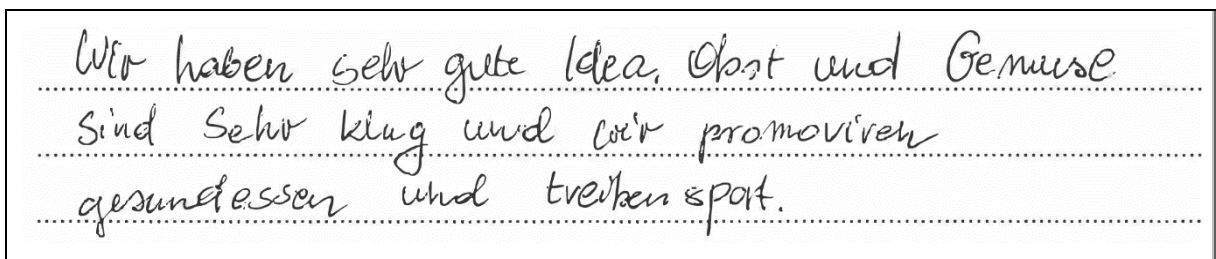 Wir haben sehr gute Idea. Obst und Gemuse
sind sehr klug und wir promoviren
gesundessen und treiben sport.